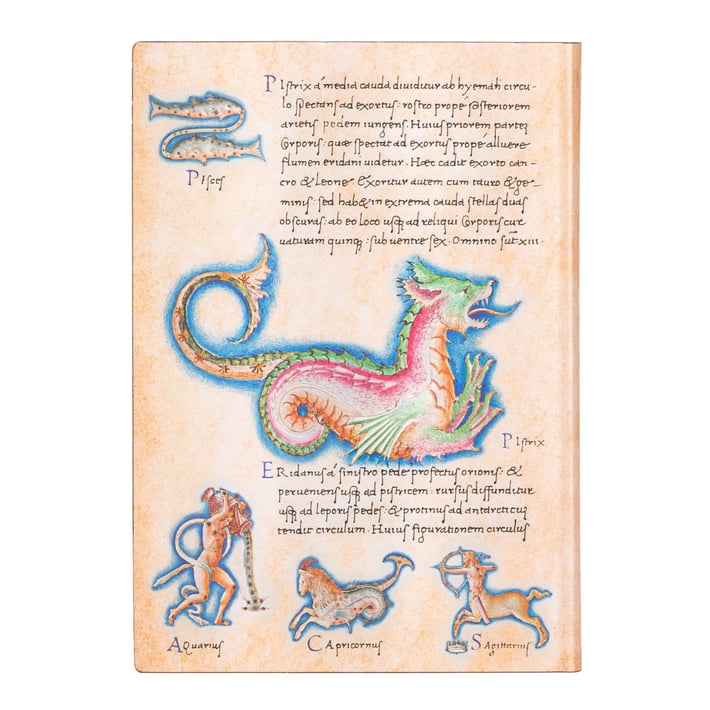 PIstrix á media cauda diuiditur ab hyemali circu-
lo spectans ad exortus: rostro propé posteriorem
arietis pedem iungens. Huius priorem partez
Corporis: quæ spectat ad exortus propé alluere
flumen eridani uidetur. Hæc cadit exorto can-
cro & leone. Exoritur autem cum tauro & ge-
minis: sed hab& in extrema cauda stellas duas
obscuras: ab eo loco usq; ad reliqui Corporis cur
uaturam quinq;: sub uentre sex. Omnino sũt xiii.
PIsces
PIstrix
ERidanus á sinistro pede profectus orionis: &
perueniens usq; ad pistricem: rursus diffunditur
usq; ad leporis pedes: & protinus ad antarcticũ
tendit circulum. Huius figurationem circulus
AQuarius
CApricornus
SAgittarius